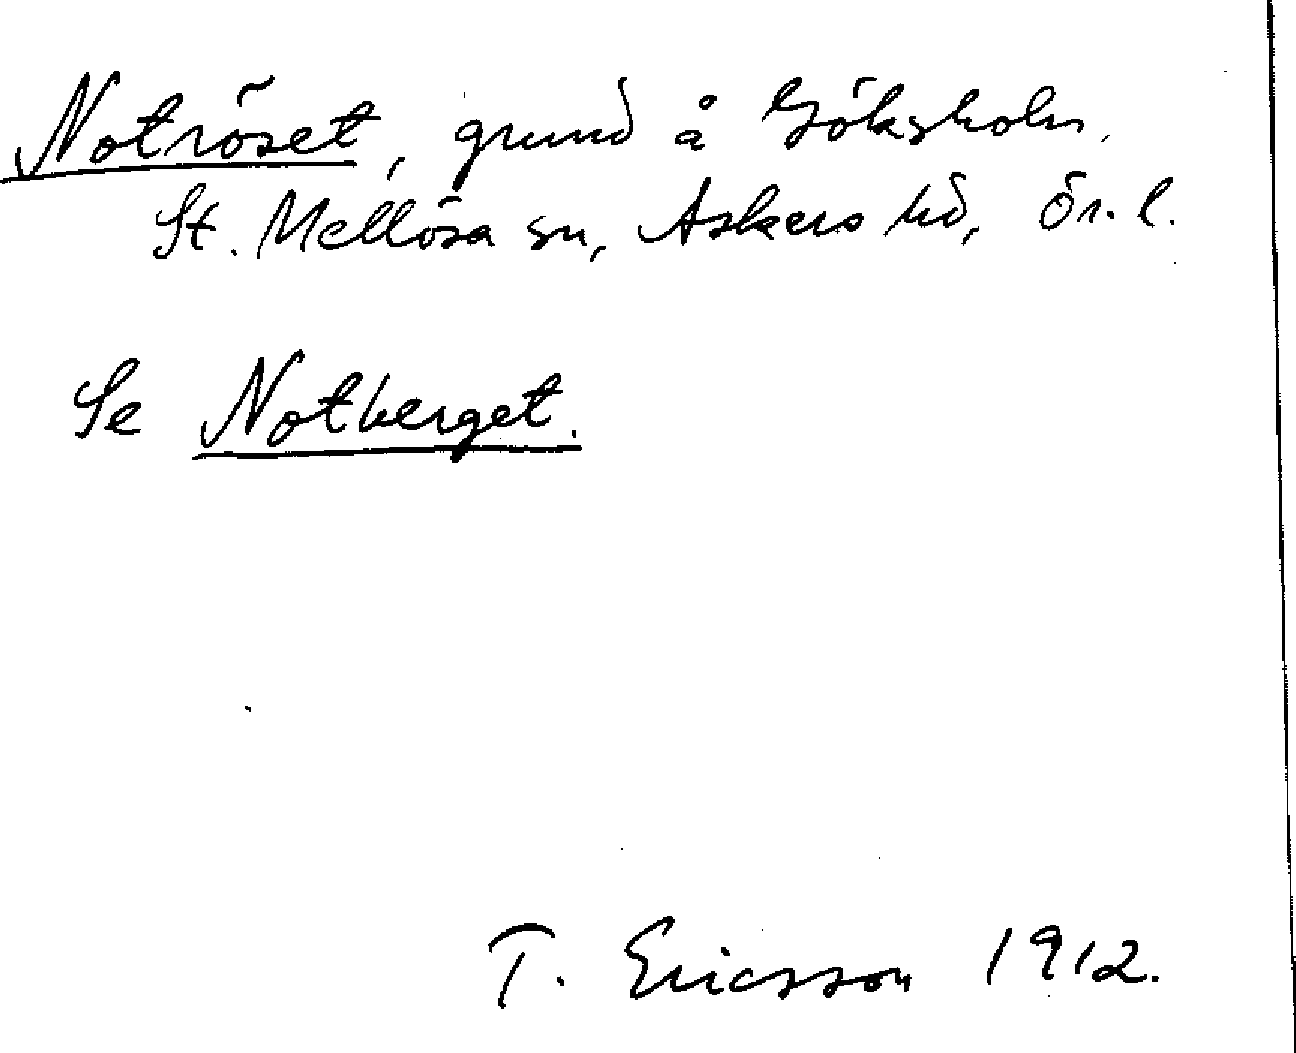 Notröset, grund å Göksholm,
St. Mellösa sn, Askers hd, Ör. l.
Se Notberget.
T. Ericsson 1912.